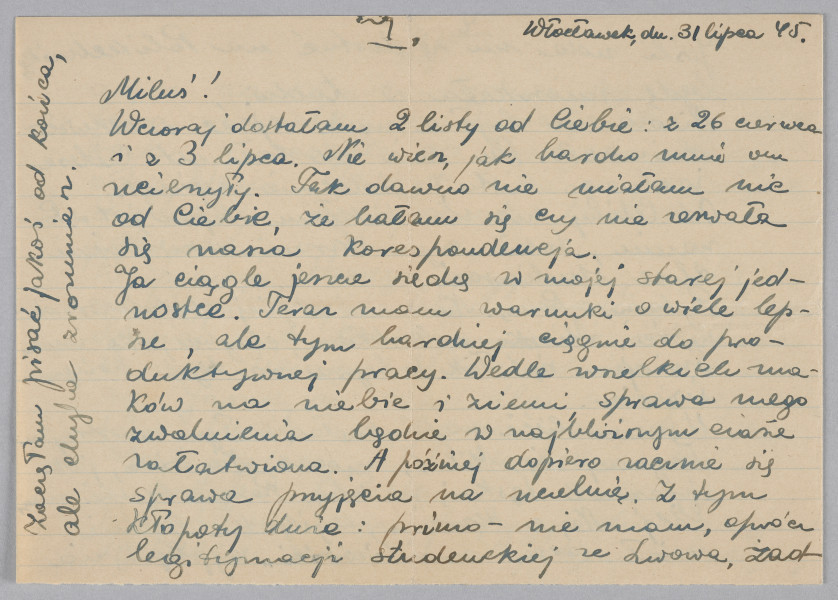 Włocławek, dn. 31 lipca 45.
Miluś!
Wczoraj dostałam 2 listy od Ciebie: z 26 czerwca
i z 3 lipca. Nie wiesz, jak bardzo mnie one
ucieszyły. Tak dawno nie miałam nic
od Ciebie, że bałam się czy nie zerwała
się nasza korespondencja.
Ja ciągle jeszcze siedzę w mojej starej jed-
nostce. Teraz mam warunki o wiele lep-
sze, ale tym bardziej ciągnie do pro-
duktywnej pracy. Wedle wszelkich zna-
ków na niebie i ziemi, sprawa mego
zwolnienia będzie w najbliższym czasie
załatwiona. A później dopiero zacznie się
sprawa przyjęcia na uczelnię. Z tym
kłopoty duże: primo - nie mam, oprócz
legitymacji studenckiej ze Lwowa, żad
Zaczęłam pisać jakoś od końca,
ale chyba zrozumiesz.